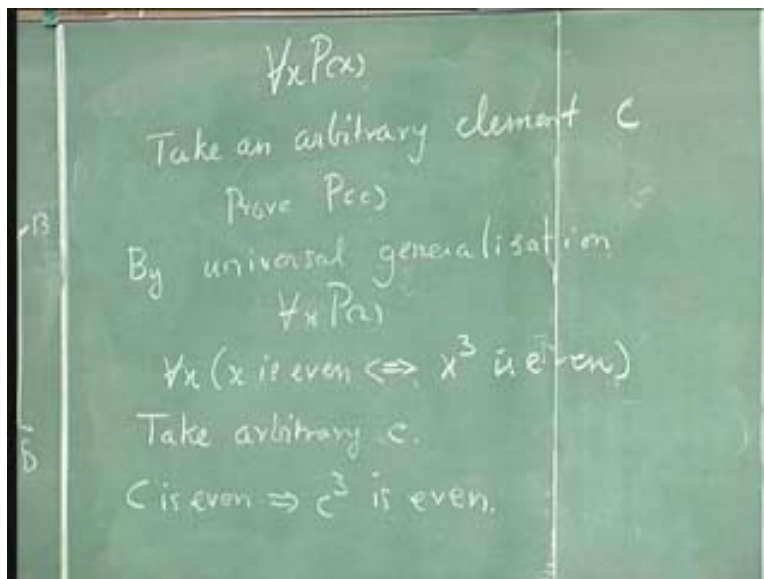 ∀x P(x)
Take an arbitrary element C
Prove P(c)
By universal generalisation
∀x P(x)
∀x (x is even <=> x³ is even)
Take arbitrary c.
C is even => c³ is even.